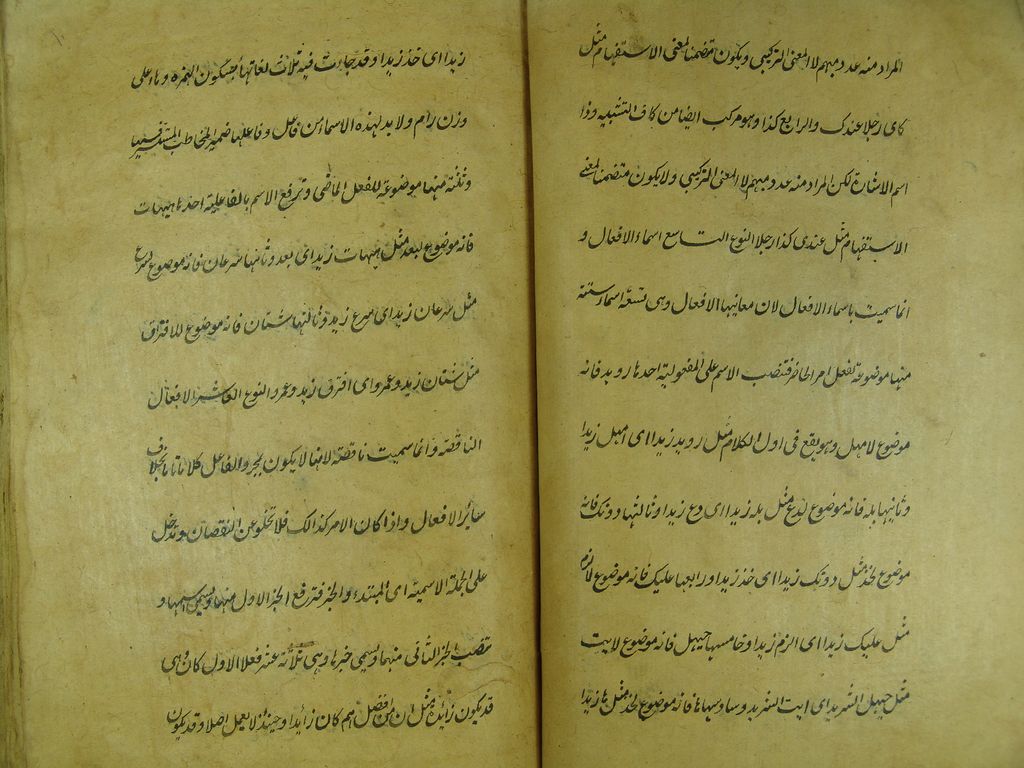 المراد منه عدد مبهم لا المعنى التركيبي ويكون متضمنا لمعنى الاستفهام مثل
كاى رجلا عندك والرابع كذا وهو مركب ايضا من كاف التشبيه وذا
اسم الاشارة لكن المراد منه عدد مبهم لا المعنى التركيبي ولا يكون متضمنا لمعنى
الاستفهام مثل عندى كذا رجلا النوع التاسع اسماء الافعال و
انما سميت باسماء الافعال لان معانيها الافعال وهى تسعة اسماء ستة
منها موضوعة لفعل امر الحاضر فتنصب الاسم على المفعولية احدها رويد فانه
موضوع لامهل وهو يقع فى اول الكلام مثل رويد زيدا اى امهل زيدا
وثانيها بله فانه موضوع لدع مثل بله زيدا اى دع زيدا وثالثها دونك فانه
موضوع لخذ مثل دونك زيدا اى خذ زيدا ورابعها عليك فانه موضوع لالزم
مثل عليك زيدا اى الزم زيدا وخامسها حيهل فانه موضوع لايت
مثل حيهل الثريد اى ايت الثريد وسادسها ها فانه موضوع لخذ مثل ها زيدا
زيدا اى خذ زيدا وقد جاءت فيه ثلاث لغات هأ بسكون الهمزه وهاء على
وزن رام ولا بد لهذه الاسماء من فاعل وفاعلها ضمير المخاطب المستتر فيها
وثلثة منها موضوعة للفعل الماضى وترفع الاسم بالفاعلية احدها هيهات
فانه موضوع لبعد مثل هيهات زيد اى بعد وثانيها سرعان فانه موضوع لسرع
مثل سرعان زيد اى سرع زيد وثالثها شتان فانه موضوع للافتراق
مثل شتان زيد وعمرو اى افترق زيد وعمرو النوع العاشر الافعال
الناقصة وانما سميت ناقصة لانها لا يكون بمجرد الفاعل كلاما تاما بخلاف
سائر الافعال واذا كان الامر كذالك فلا تخلو عن النقصان وتدخل
على الجملة الاسمية اى المبتدء والخبر فترفع الجزء الاول منهما ويسمى اسمها و
تنصب الجزء الثانى منهما ويسمى خبرها وهى ثلاثة عشر فعلا الاول كان وهى
قد يكون زائدة مثل ان من افضلهم كان زائدا وحينئذ لا يعمل اصلا وقد يكون